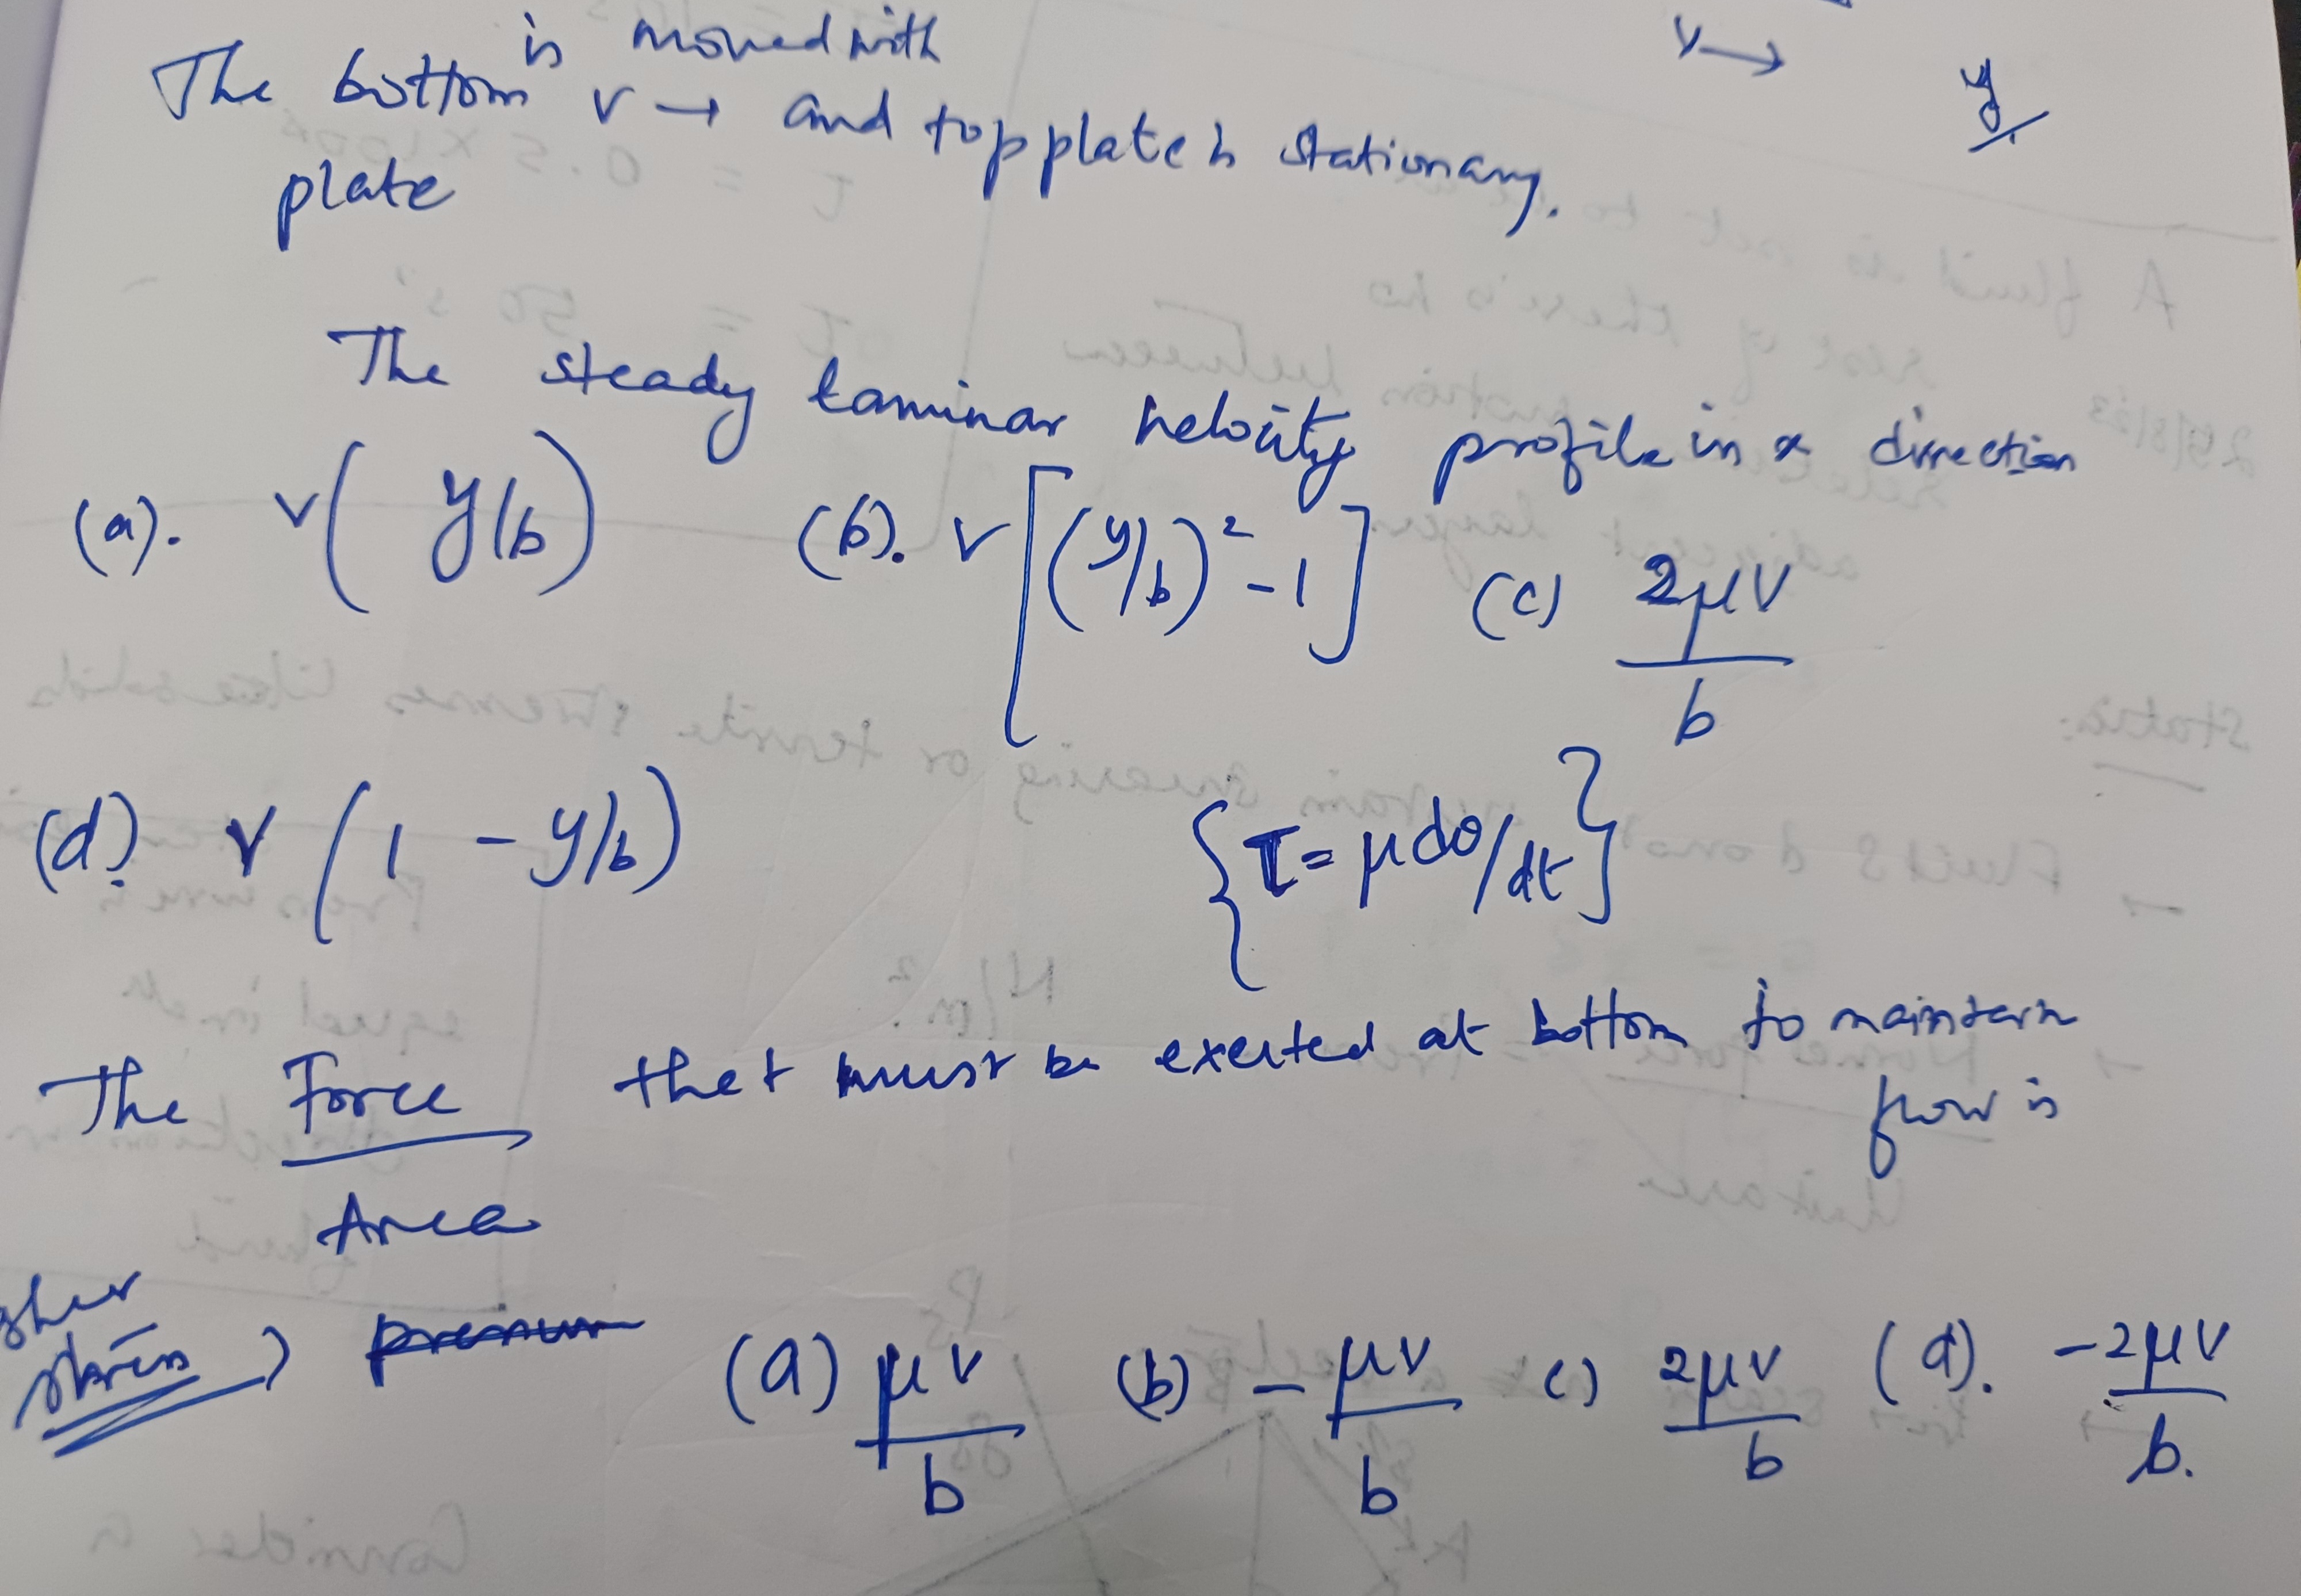 is moved with
The bottom v → and top plate is stationary.
plate
v →
y
The steady laminar velocity profile in x direction
(a). v(y/b) (b). v[(y/b)² - 1] (c) 2μV/b
(d). v(1 - y/b) {τ = μ dθ/dt}
The Force/Area that must be exerted at bottom to maintain
flow is
stress) (a) μv/b (b) - μv/b c) 2μv/b (d). -2μv/b.